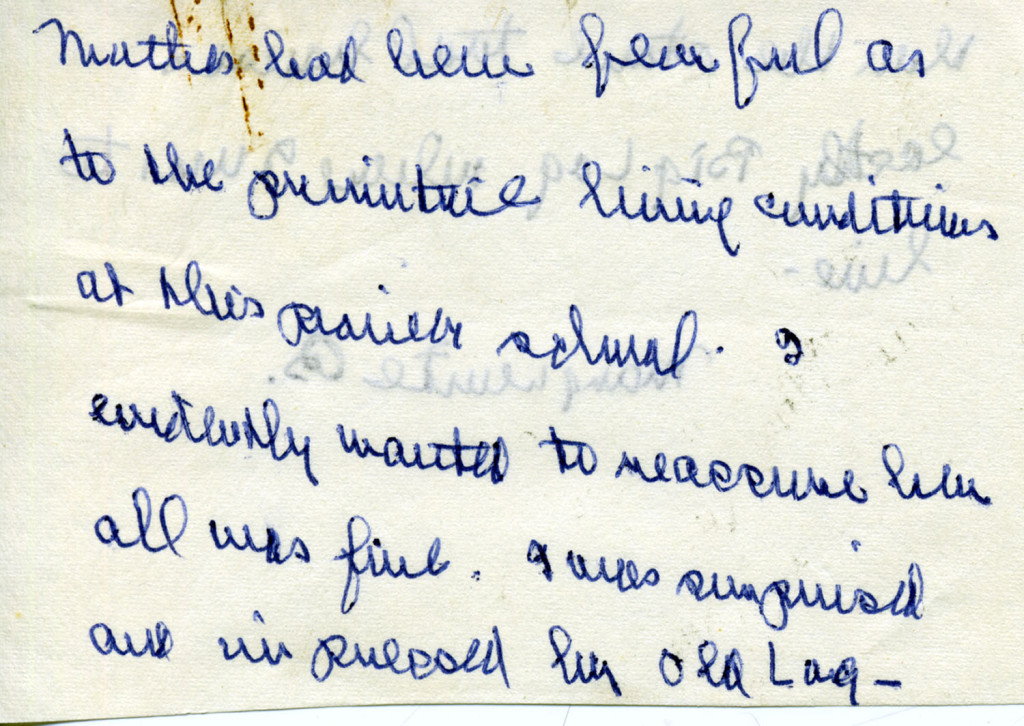 Mother had been fearful as
to the primitive living conditions
at this school. I
evidently wanted to reassure her
all was fine. I was surprised
and impressed by Old Log -